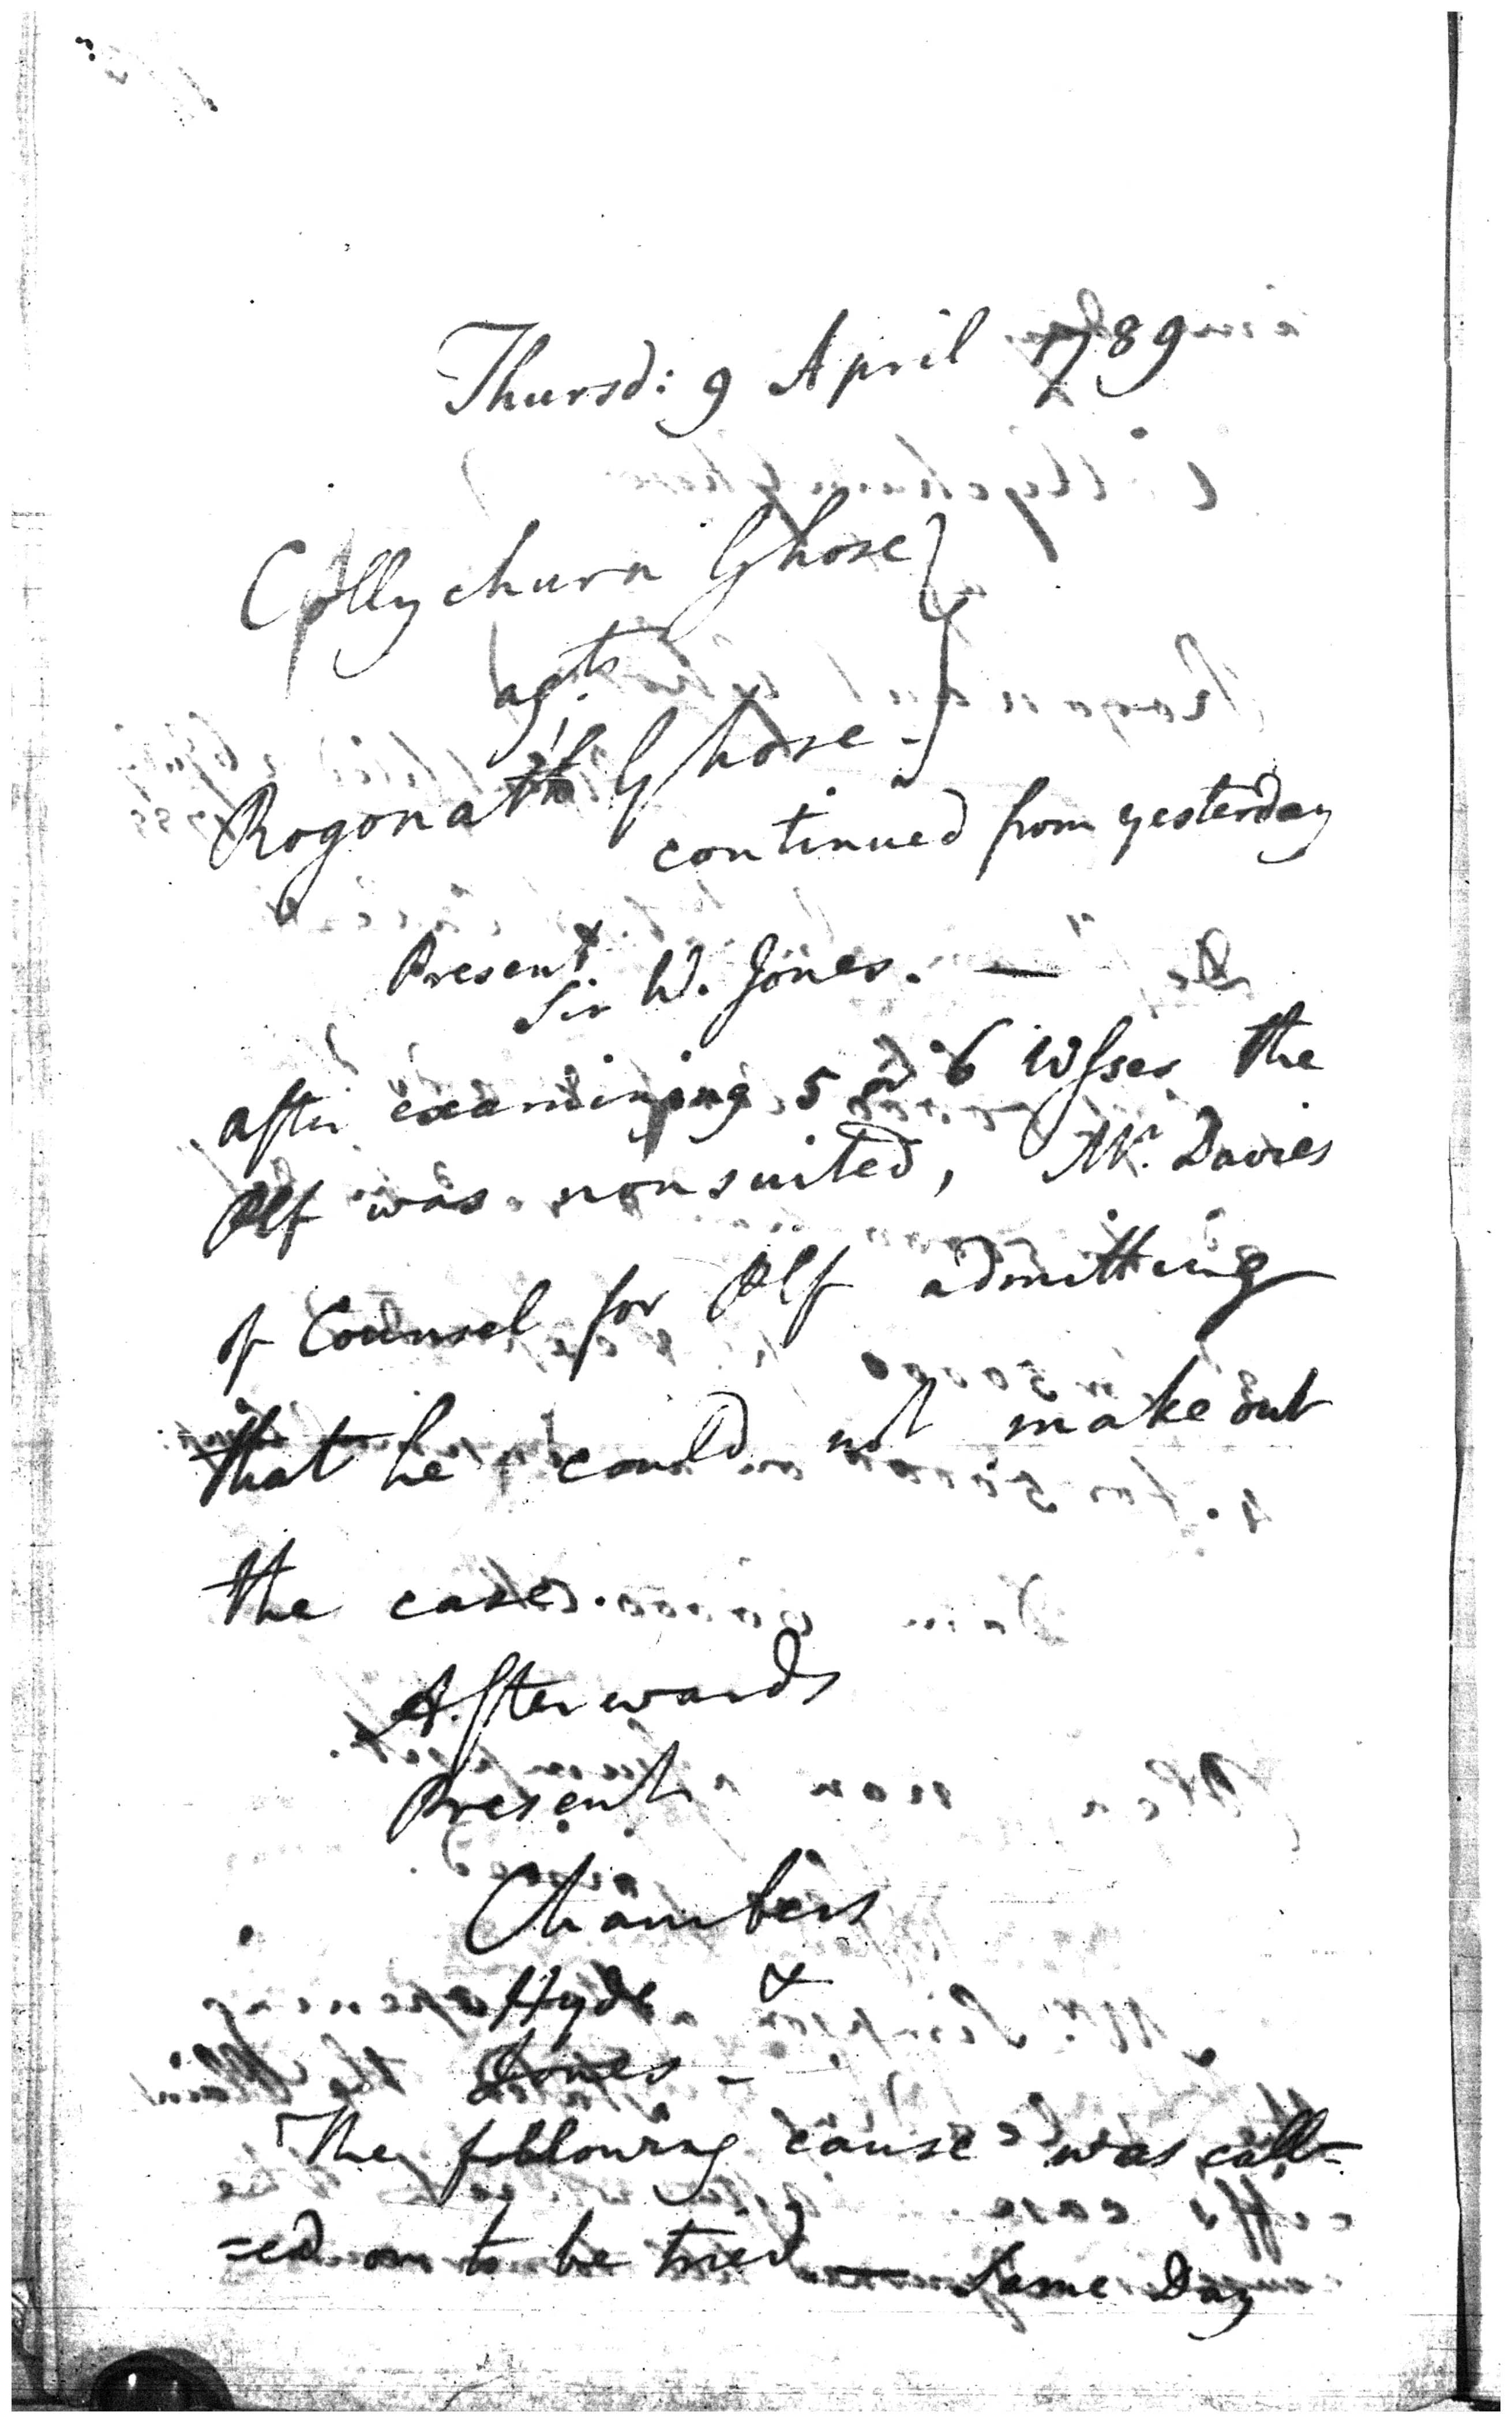 Thursd: 9 April 1789
Collychurn Ghose
agt
Rogonath Ghose -
continued from yesterday
Present
Sir W. Jones. —
after examining 5 or 6 Wsses the
Plf was nonsuited, Mr. Davies
of Counsel for Plf admitting
that he could not make out
the case.
Afterwards
Present
Chambers
Hyde &
Jones -
The following cause was call=
=ed on to be tried — Same Day